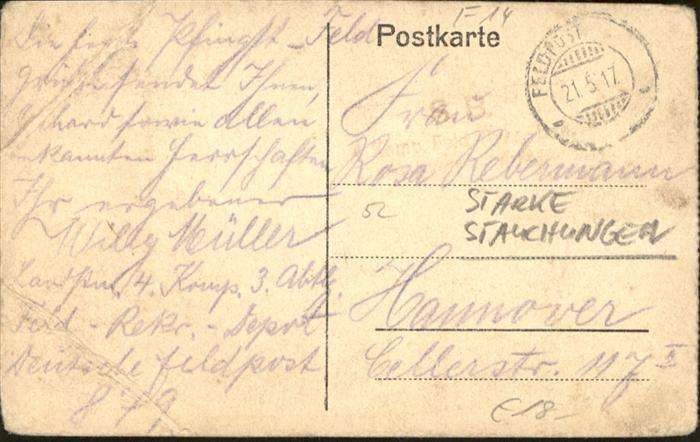 Die herzl. Pfingst-Feld
grüße sendet Ihnen,
sowie allen
bekannten Herrschaften
Ihr ergebener
Willy Müller
Landstm. 4. Komp. 3. Abtlg.
Feld-Rekr.-Depot
Deutsche Feldpost
879
F-14
Postkarte
FELDPOST
21.5.17.
Frau
Rosa Rebermann
STARKE
STAUCHUNGEN
Hannover
Cellerstr. 117 II
€18-